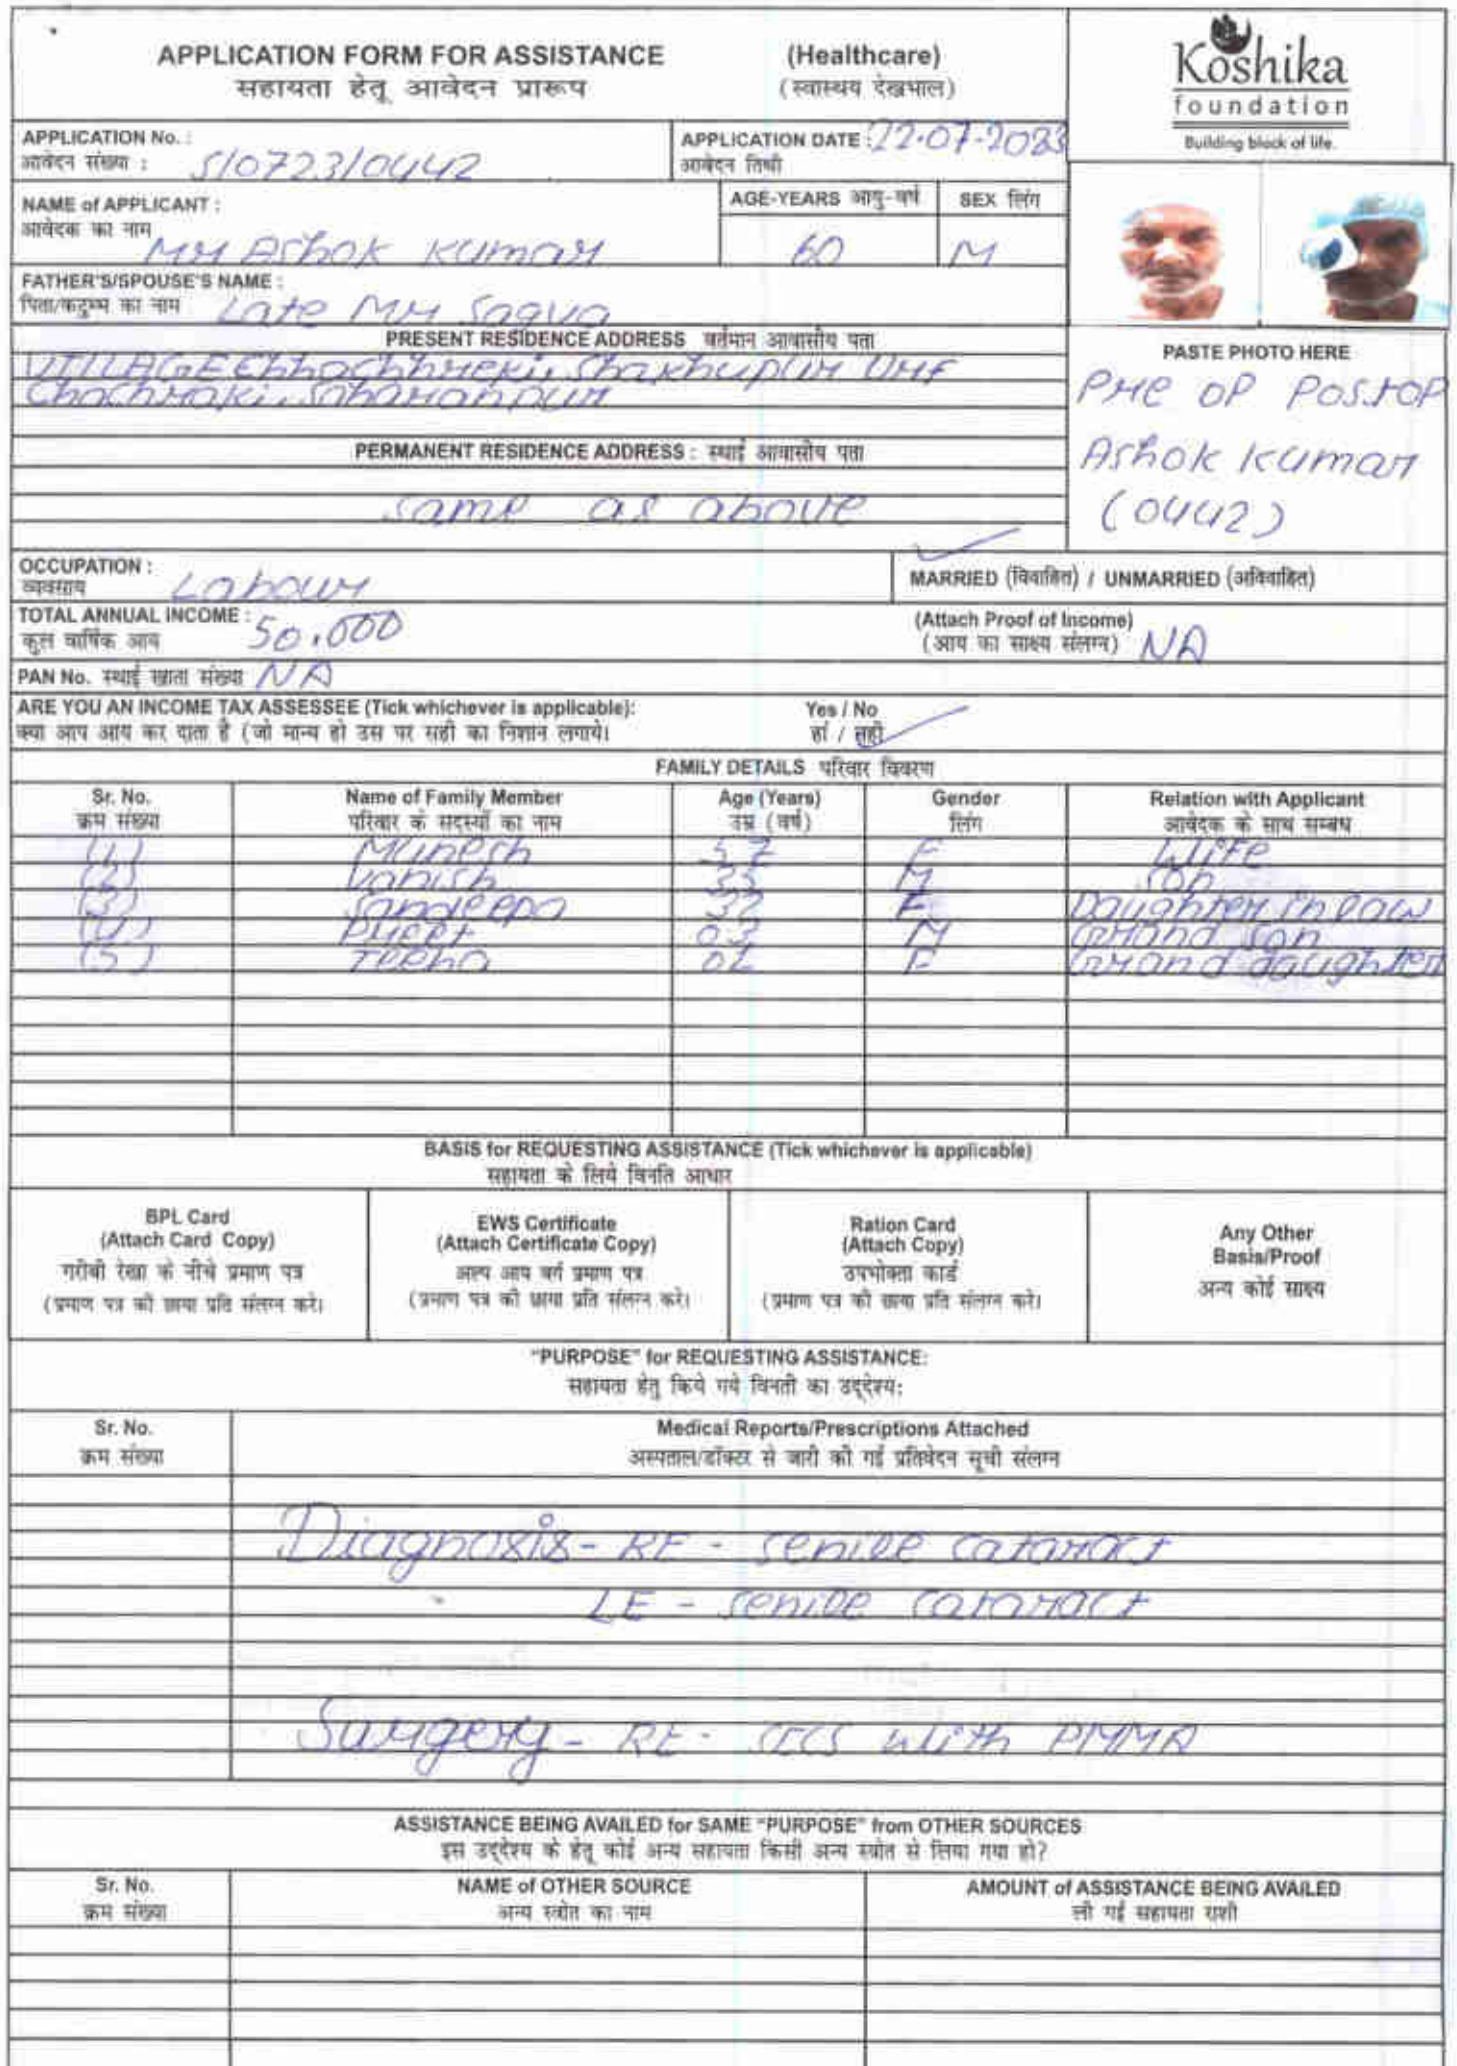 APPLICATION FORM FOR ASSISTANCE (Healthcare)
सहायता हेतू आवेदन प्रारूप (स्वास्थय देखभाल)
Koshika
foundation
Building block of life.
APPLICATION No. :
आवेदन संख्या : S/0723/0442
APPLICATION DATE : 22-07-2023
आवेदन तिथी
NAME of APPLICANT :
आवेदक का नाम
Mr Ashok Kumar
AGE-YEARS आयु-वर्ष
60
SEX लिंग
M
FATHER'S/SPOUSE'S NAME :
पिता/कटुम्भ का नाम Late Mr Sagva
PRESENT RESIDENCE ADDRESS वर्तमान आवासीय पता
VILLAGE Chhachhreki, Shakhupur Urf
Chachraki, Saharanpur
PERMANENT RESIDENCE ADDRESS : स्थाई आवासीय पता
same as above
PASTE PHOTO HERE
Pre OP Post OP
Ashok Kumar
(0442)
OCCUPATION :
व्यवसाय Labour
MARRIED (विवाहित) / UNMARRIED (अविवाहित)
TOTAL ANNUAL INCOME : 50,000
कुल वार्षिक आय
(Attach Proof of Income)
(आय का साक्ष्य संलग्न) NA
PAN No. स्थाई खाता संख्या NA
ARE YOU AN INCOME TAX ASSESSEE (Tick whichever is applicable): Yes / No
क्या आप आय कर दाता है (जो मान्य हो उस पर सही का निशान लगाये। हां / नहीं
FAMILY DETAILS परिवार विवरण
Sr. No. Name of Family Member Age (Years) Gender Relation with Applicant
क्रम संख्या परिवार के सदस्यों का नाम उम्र (वर्ष) लिंग आवेदक के साथ सम्बंध
(1) Munesh 57 F Wife
(2) Vanish 35 M Son
(3) Sandeepa 32 F Daughter in law
(4) Preet 03 M Grand son
(5) Teena F Grand daughter
BASIS for REQUESTING ASSISTANCE (Tick whichever is applicable)
सहायता के लिये विनति आधार
BPL Card
(Attach Card Copy)
गरीबी रेखा के नीचे प्रमाण पत्र
(प्रमाण पत्र की छाया प्रति संलग्न करे।
EWS Certificate
(Attach Certificate Copy)
अल्प आय वर्ग प्रमाण पत्र
(प्रमाण पत्र की छाया प्रति संलग्न करे।
Ration Card
(Attach Copy)
उपभोक्ता कार्ड
(प्रमाण पत्र की छाया प्रति संलग्न करे।
Any Other
Basis/Proof
अन्य कोई साक्ष्य
"PURPOSE" for REQUESTING ASSISTANCE:
सहायता हेतु किये गये विनती का उद्देश्य:
Sr. No. Medical Reports/Prescriptions Attached
क्रम संख्या अस्पताल/डॉक्टर से जारी की गई प्रतिवेदन सूची संलग्न
Diagnosis - RE - senile cataract
LE - senile cataract
Surgery - RE - SICS with PMMA
ASSISTANCE BEING AVAILED for SAME "PURPOSE" from OTHER SOURCES
इस उद्देश्य के हेतू कोई अन्य सहायता किसी अन्य स्त्रोत से लिया गया हो?
Sr. No. NAME of OTHER SOURCE AMOUNT of ASSISTANCE BEING AVAILED
क्रम संख्या अन्य स्त्रोत का नाम ली गई सहायता राशी